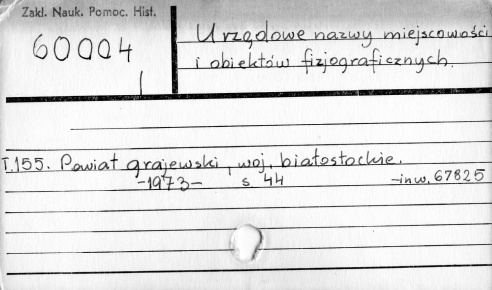 Zakł. Nauk. Pomoc. Hist.
60004
Urzędowe nazwy miejscowości
i obiektów fizjograficznych.
T.155. Powiat grajewski, woj. białostockie.
-1973- s. 44 -inw. 67825